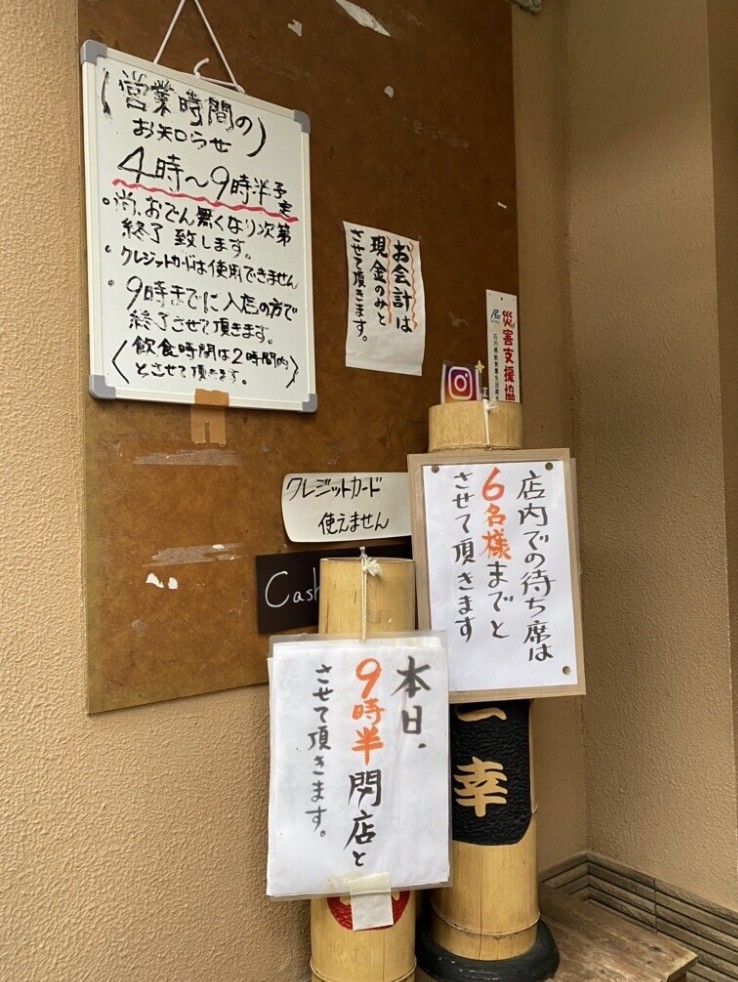 (営業時間の
お知らせ)
4時～9時半予定
・尚、おでん無くなり次第
終了致します。
・クレジットカードは使用できません
・9時までに入店の方で
終了させて頂きます。
〈飲食時間は2時間内
とさせて頂きます。〉
お会計は
現金のみと
させて頂きます。
災害支援協
クレジットカード
使えません
Cash
店内での待ち席は
6名様までと
させて頂きます
本日.
9時半閉店と
させて頂きます。
一幸